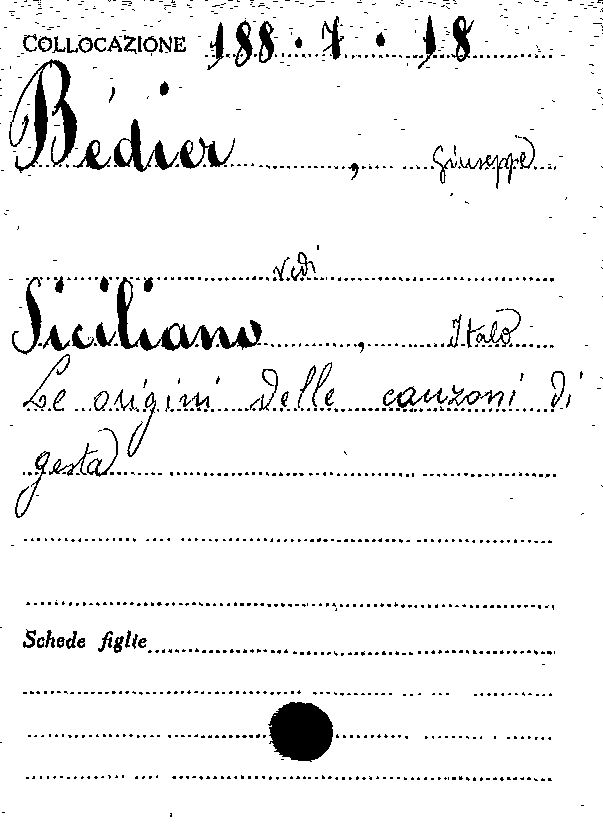 COLLOCAZIONE 188 · 7 · 18
Bédier, Giuseppe
vedi
Siciliano, Italo
Le origini delle canzoni di
gesta
Schede figlie